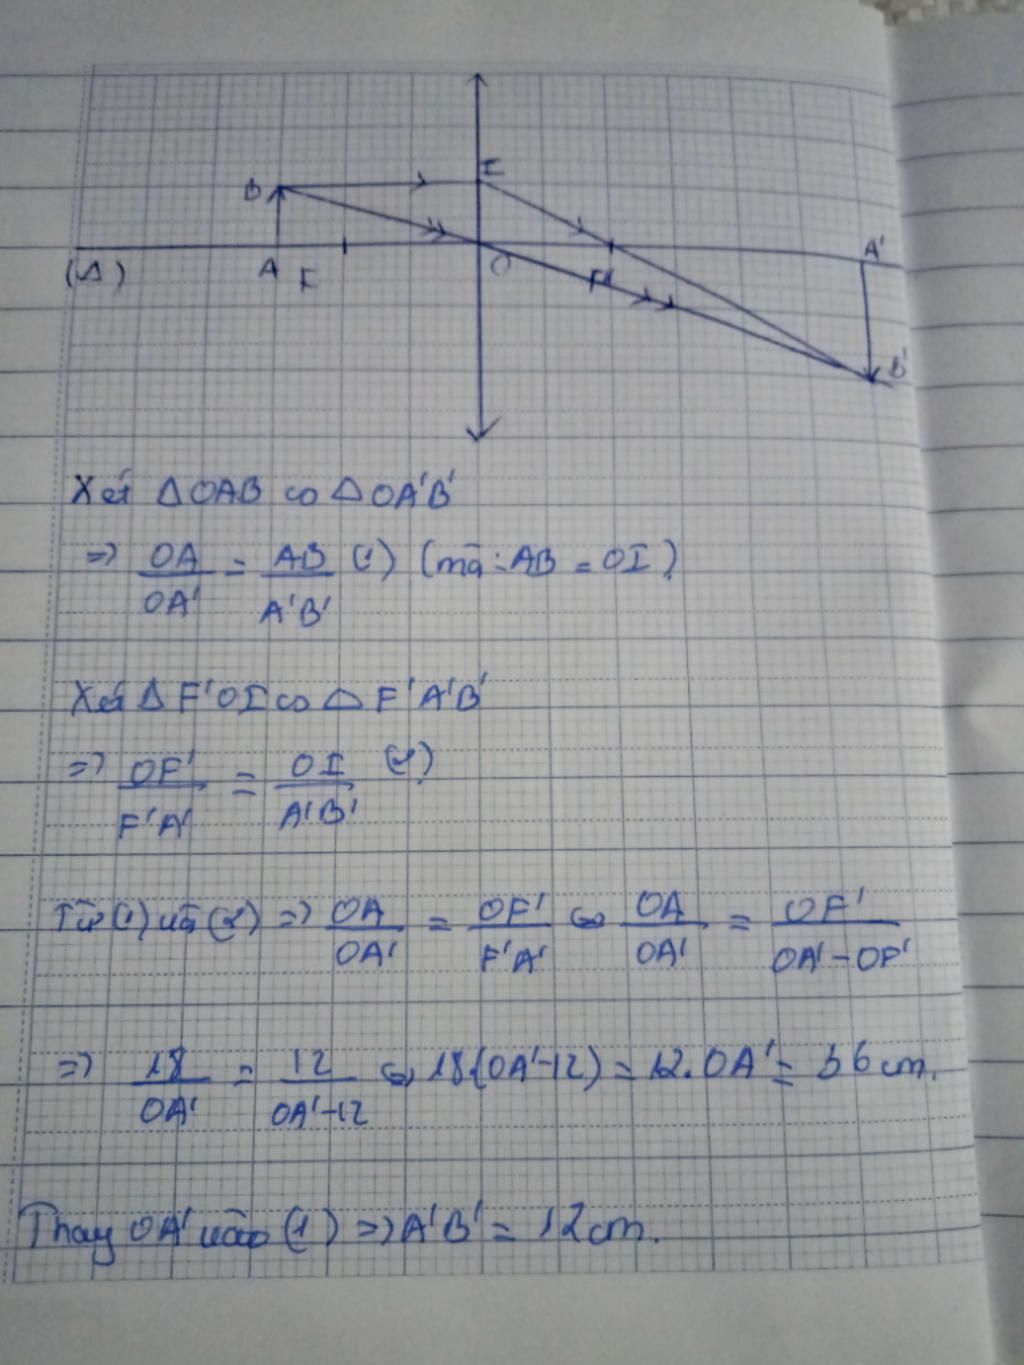 I
B
A'
(Δ) A F O F'
B'
Xét ΔOAB ∽ ΔOA'B'
=> OA/OA' = AB/A'B' (1) (mà: AB = OI)
Xét ΔF'OI ∽ ΔF'A'B'
=> OF'/F'A' = OI/A'B' (2)
Từ (1) và (2) => OA/OA' = OF'/F'A' ⇔ OA/OA' = OF'/OA'-OF'
=> 18/OA' = 12/OA'-12 ⇔ 18.(OA'-12) = 12.OA' = 36cm.
Thay OA' vào (1) => A'B' = 12cm.